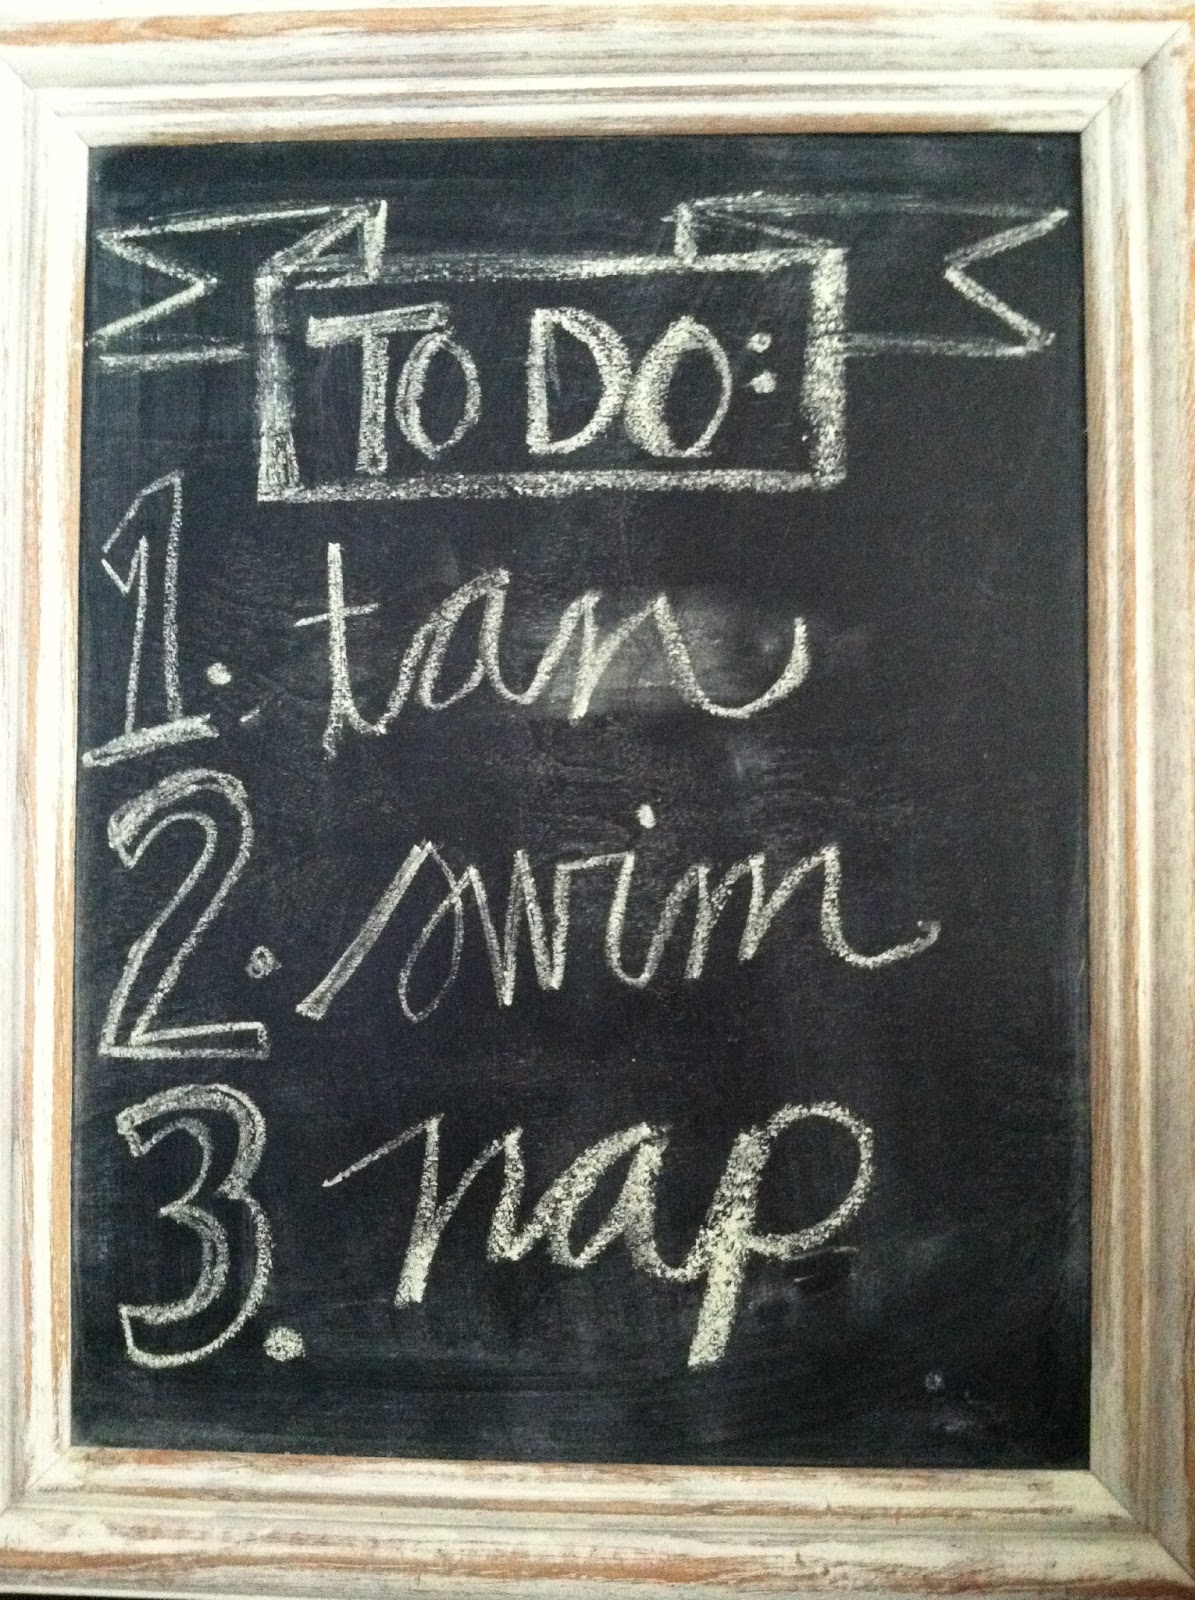 TO DO:
1. tan
2. swim
3. nap